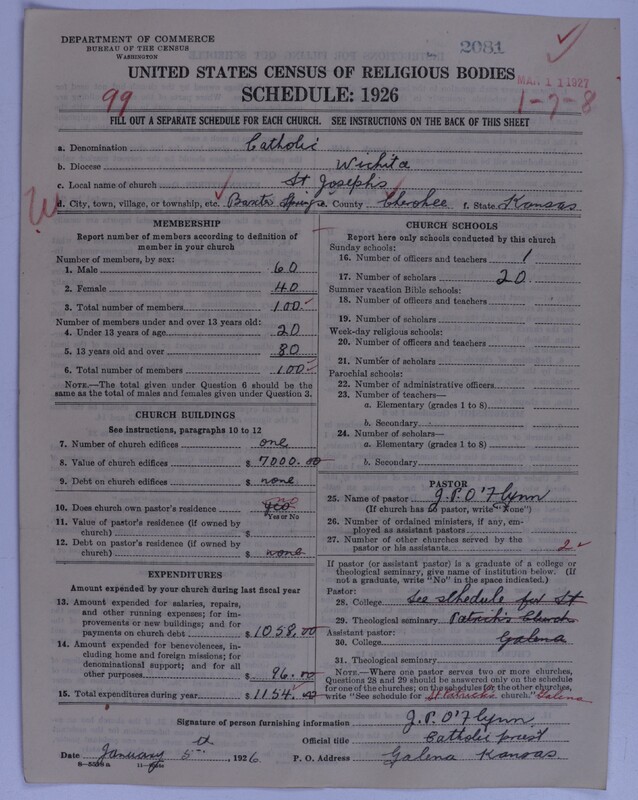 DEPARTMENT OF COMMERCE
BUREAU OF THE CENSUS
WASHINGTON
2081
UNITED STATES CENSUS OF RELIGIOUS BODIES
MAR 11 1927
SCHEDULE: 1926
99
1-7-8
FILL OUT A SEPARATE SCHEDULE FOR EACH CHURCH. SEE INSTRUCTIONS ON THE BACK OF THIS SHEET
a. Denomination Catholic
b. Diocese Wichita
c. Local name of church St Josephs
d. City, town, village, or township, etc. Baxter Springs e. County Cherokee f. State Kansas
MEMBERSHIP
Report number of members according to definition of member in your church
Number of members, by sex:
1. Male 60
2. Female 40
3. Total number of members 100
Number of members under and over 13 years old:
4. Under 13 years of age 20
5. 13 years old and over 80
6. Total number of members 100
NOTE.—The total given under Question 6 should be the same as the total of males and females given under Question 3.
CHURCH BUILDINGS
See instructions, paragraphs 10 to 12
7. Number of church edifices one
8. Value of church edifices $ 7000.00
9. Debt on church edifices $ none
10. Does church own pastor's residence no
Yes or No
11. Value of pastor's residence (if owned by church) $
12. Debt on pastor's residence (if owned by church) $ none
EXPENDITURES
Amount expended by your church during last fiscal year
13. Amount expended for salaries, repairs, and other running expenses; for improvements or new buildings; and for payments on church debt $ 1058.00
14. Amount expended for benevolences, including home and foreign missions; for denominational support; and for all other purposes $ 96.00
15. Total expenditures during year $ 1154.00
CHURCH SCHOOLS
Report here only schools conducted by this church
Sunday schools:
16. Number of officers and teachers 1
17. Number of scholars 20
Summer vacation Bible schools:
18. Number of officers and teachers
19. Number of scholars
Week-day religious schools:
20. Number of officers and teachers
21. Number of scholars
Parochial schools:
22. Number of administrative officers
23. Number of teachers—
a. Elementary (grades 1 to 8)
b. Secondary
24. Number of scholars—
a. Elementary (grades 1 to 8)
b. Secondary
PASTOR
25. Name of pastor J.P. O'Flynn
(If church has no pastor, write "None")
26. Number of ordained ministers, if any, employed as assistant pastors
27. Number of other churches served by the pastor or his assistants 2
If pastor (or assistant pastor) is a graduate of a college or theological seminary, give name of institution below. (If not a graduate, write "No" in the space indicated.)
Pastor:
28. College See schedule for St
29. Theological seminary Patricks Church
Assistant pastor:
30. College Galena
31. Theological seminary
NOTE.—Where one pastor serves two or more churches, Questions 28 and 29 should be answered only on the schedule for one of the churches; on the schedules for the other churches, write "See schedule for St Patrick's church." Galena
Signature of person furnishing information J.P. O'Flynn
Official title Catholic priest
Date January 5th, 1926 P. O. Address Galena Kansas